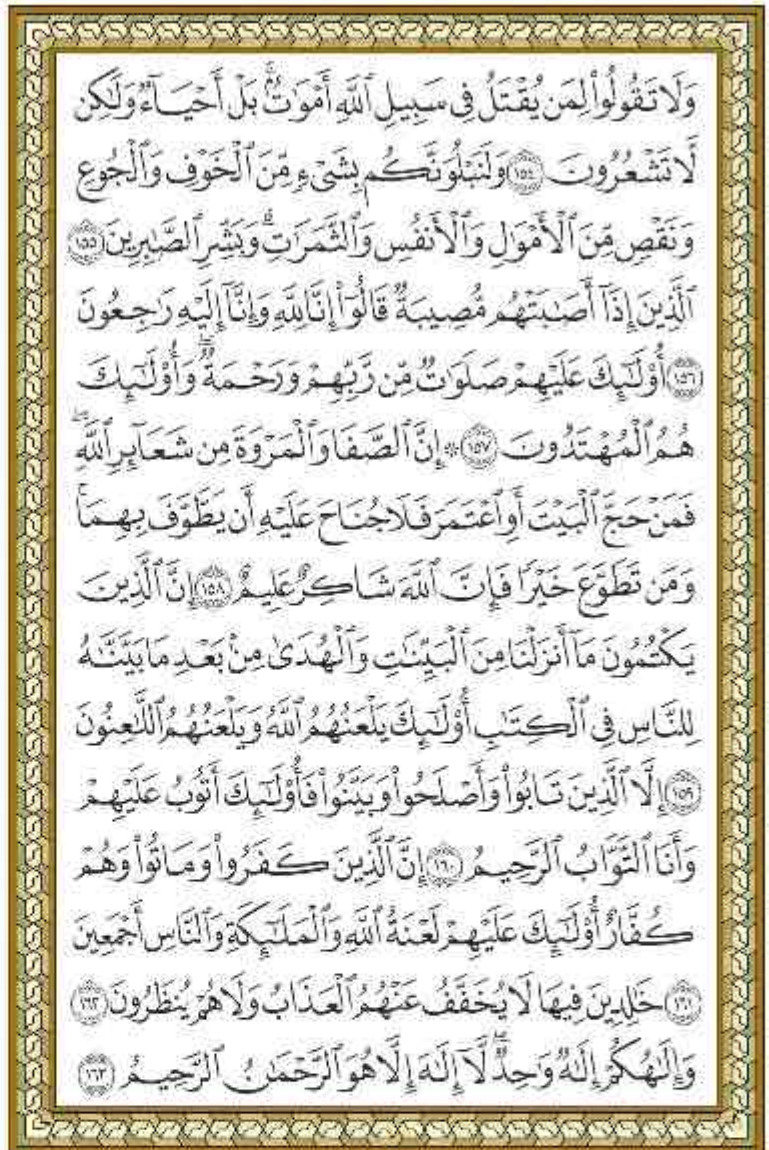 وَلَا تَقُولُوا۟ لِمَن يُقْتَلُ فِى سَبِيلِ ٱللَّهِ أَمْوَٰتٌۢ ۚ بَلْ أَحْيَآءٌ وَلَٰكِن
لَّا تَشْعُرُونَ ﴿١٥٤﴾ وَلَنَبْلُوَنَّكُم بِشَىْءٍ مِّنَ ٱلْخَوْفِ وَٱلْجُوعِ
وَنَقْصٍ مِّنَ ٱلْأَمْوَٰلِ وَٱلْأَنفُسِ وَٱلثَّمَرَٰتِ ۗ وَبَشِّرِ ٱلصَّٰبِرِينَ ﴿١٥٥﴾
ٱلَّذِينَ إِذَآ أَصَٰبَتْهُم مُّصِيبَةٌ قَالُوٓا۟ إِنَّا لِلَّهِ وَإِنَّآ إِلَيْهِ رَٰجِعُونَ
﴿١٥٦﴾ أُو۟لَٰٓئِكَ عَلَيْهِمْ صَلَوَٰتٌ مِّن رَّبِّهِمْ وَرَحْمَةٌ ۖ وَأُو۟لَٰٓئِكَ
هُمُ ٱلْمُهْتَدُونَ ﴿١٥٧﴾ ۞ إِنَّ ٱلصَّفَا وَٱلْمَرْوَةَ مِن شَعَآئِرِ ٱللَّهِ ۖ
فَمَنْ حَجَّ ٱلْبَيْتَ أَوِ ٱعْتَمَرَ فَلَا جُنَاحَ عَلَيْهِ أَن يَطَّوَّفَ بِهِمَا ۚ
وَمَن تَطَوَّعَ خَيْرًا فَإِنَّ ٱللَّهَ شَاكِرٌ عَلِيمٌ ﴿١٥٨﴾ إِنَّ ٱلَّذِينَ
يَكْتُمُونَ مَآ أَنزَلْنَا مِنَ ٱلْبَيِّنَٰتِ وَٱلْهُدَىٰ مِنۢ بَعْدِ مَا بَيَّنَّٰهُ
لِلنَّاسِ فِى ٱلْكِتَٰبِ ۙ أُو۟لَٰٓئِكَ يَلْعَنُهُمُ ٱللَّهُ وَيَلْعَنُهُمُ ٱللَّٰعِنُونَ
﴿١٥٩﴾ إِلَّا ٱلَّذِينَ تَابُوا۟ وَأَصْلَحُوا۟ وَبَيَّنُوا۟ فَأُو۟لَٰٓئِكَ أَتُوبُ عَلَيْهِمْ ۚ
وَأَنَا ٱلتَّوَّابُ ٱلرَّحِيمُ ﴿١٦٠﴾ إِنَّ ٱلَّذِينَ كَفَرُوا۟ وَمَاتُوا۟ وَهُمْ
كُفَّارٌ أُو۟لَٰٓئِكَ عَلَيْهِمْ لَعْنَةُ ٱللَّهِ وَٱلْمَلَٰٓئِكَةِ وَٱلنَّاسِ أَجْمَعِينَ
﴿١٦١﴾ خَٰلِدِينَ فِيهَا ۖ لَا يُخَفَّفُ عَنْهُمُ ٱلْعَذَابُ وَلَا هُمْ يُنظَرُونَ ﴿١٦٢﴾
وَإِلَٰهُكُمْ إِلَٰهٌ وَٰحِدٌ ۖ لَّآ إِلَٰهَ إِلَّا هُوَ ٱلرَّحْمَٰنُ ٱلرَّحِيمُ ﴿١٦٣﴾